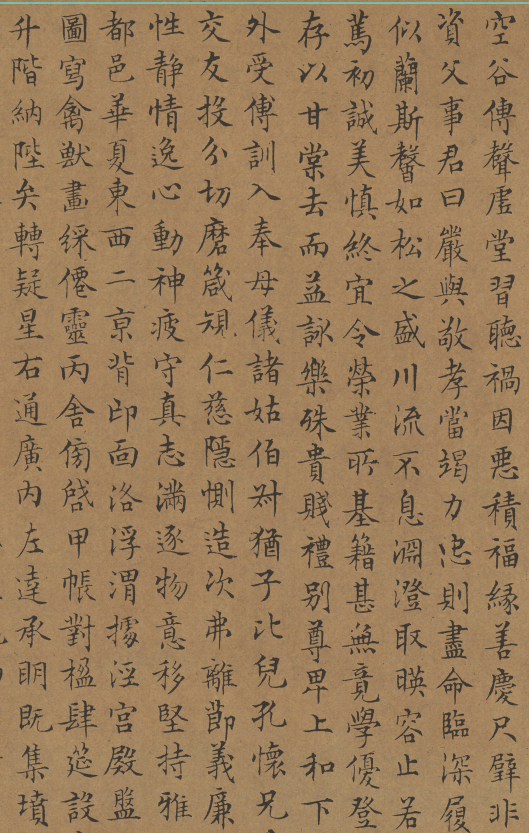 空谷傳聲虛堂習聽禍因惡積福緣善慶尺璧非
資父事君曰嚴與敬孝當竭力忠則盡命臨深履
似蘭斯馨如松之盛川流不息淵澄取暎容止若
篤初誠美慎終宜令榮業所基籍甚無竟學優登
存以甘棠去而益詠樂殊貴賤禮別尊卑上和下
外受傅訓入奉母儀諸姑伯叔猶子比兒孔懷兄
交友投分切磨箴規仁慈隱惻造次弗離節義廉
性靜情逸心動神疲守真志滿逐物意移堅持雅
都邑華夏東西二京背邙面洛浮渭據涇宮殿盤
圖寫禽獸畫綵僊靈丙舍傍啓甲帳對楹肆筵設
升階納陛弁轉疑星右通廣內左達承明既集墳